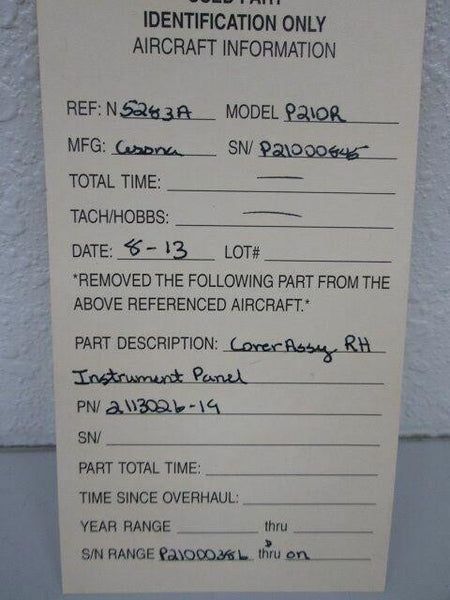 USED PART
IDENTIFICATION ONLY
AIRCRAFT INFORMATION
REF: N 5283A MODEL P210R
MFG: Cessna SN/ P21000845
TOTAL TIME: —
TACH/HOBBS: —
DATE: 8-13 LOT#
*REMOVED THE FOLLOWING PART FROM THE
ABOVE REFERENCED AIRCRAFT.*
PART DESCRIPTION: Cover Assy RH
Instrument Panel
PN/ 2113026-19
SN/
PART TOTAL TIME:
TIME SINCE OVERHAUL:
YEAR RANGE thru
S/N RANGE thru on